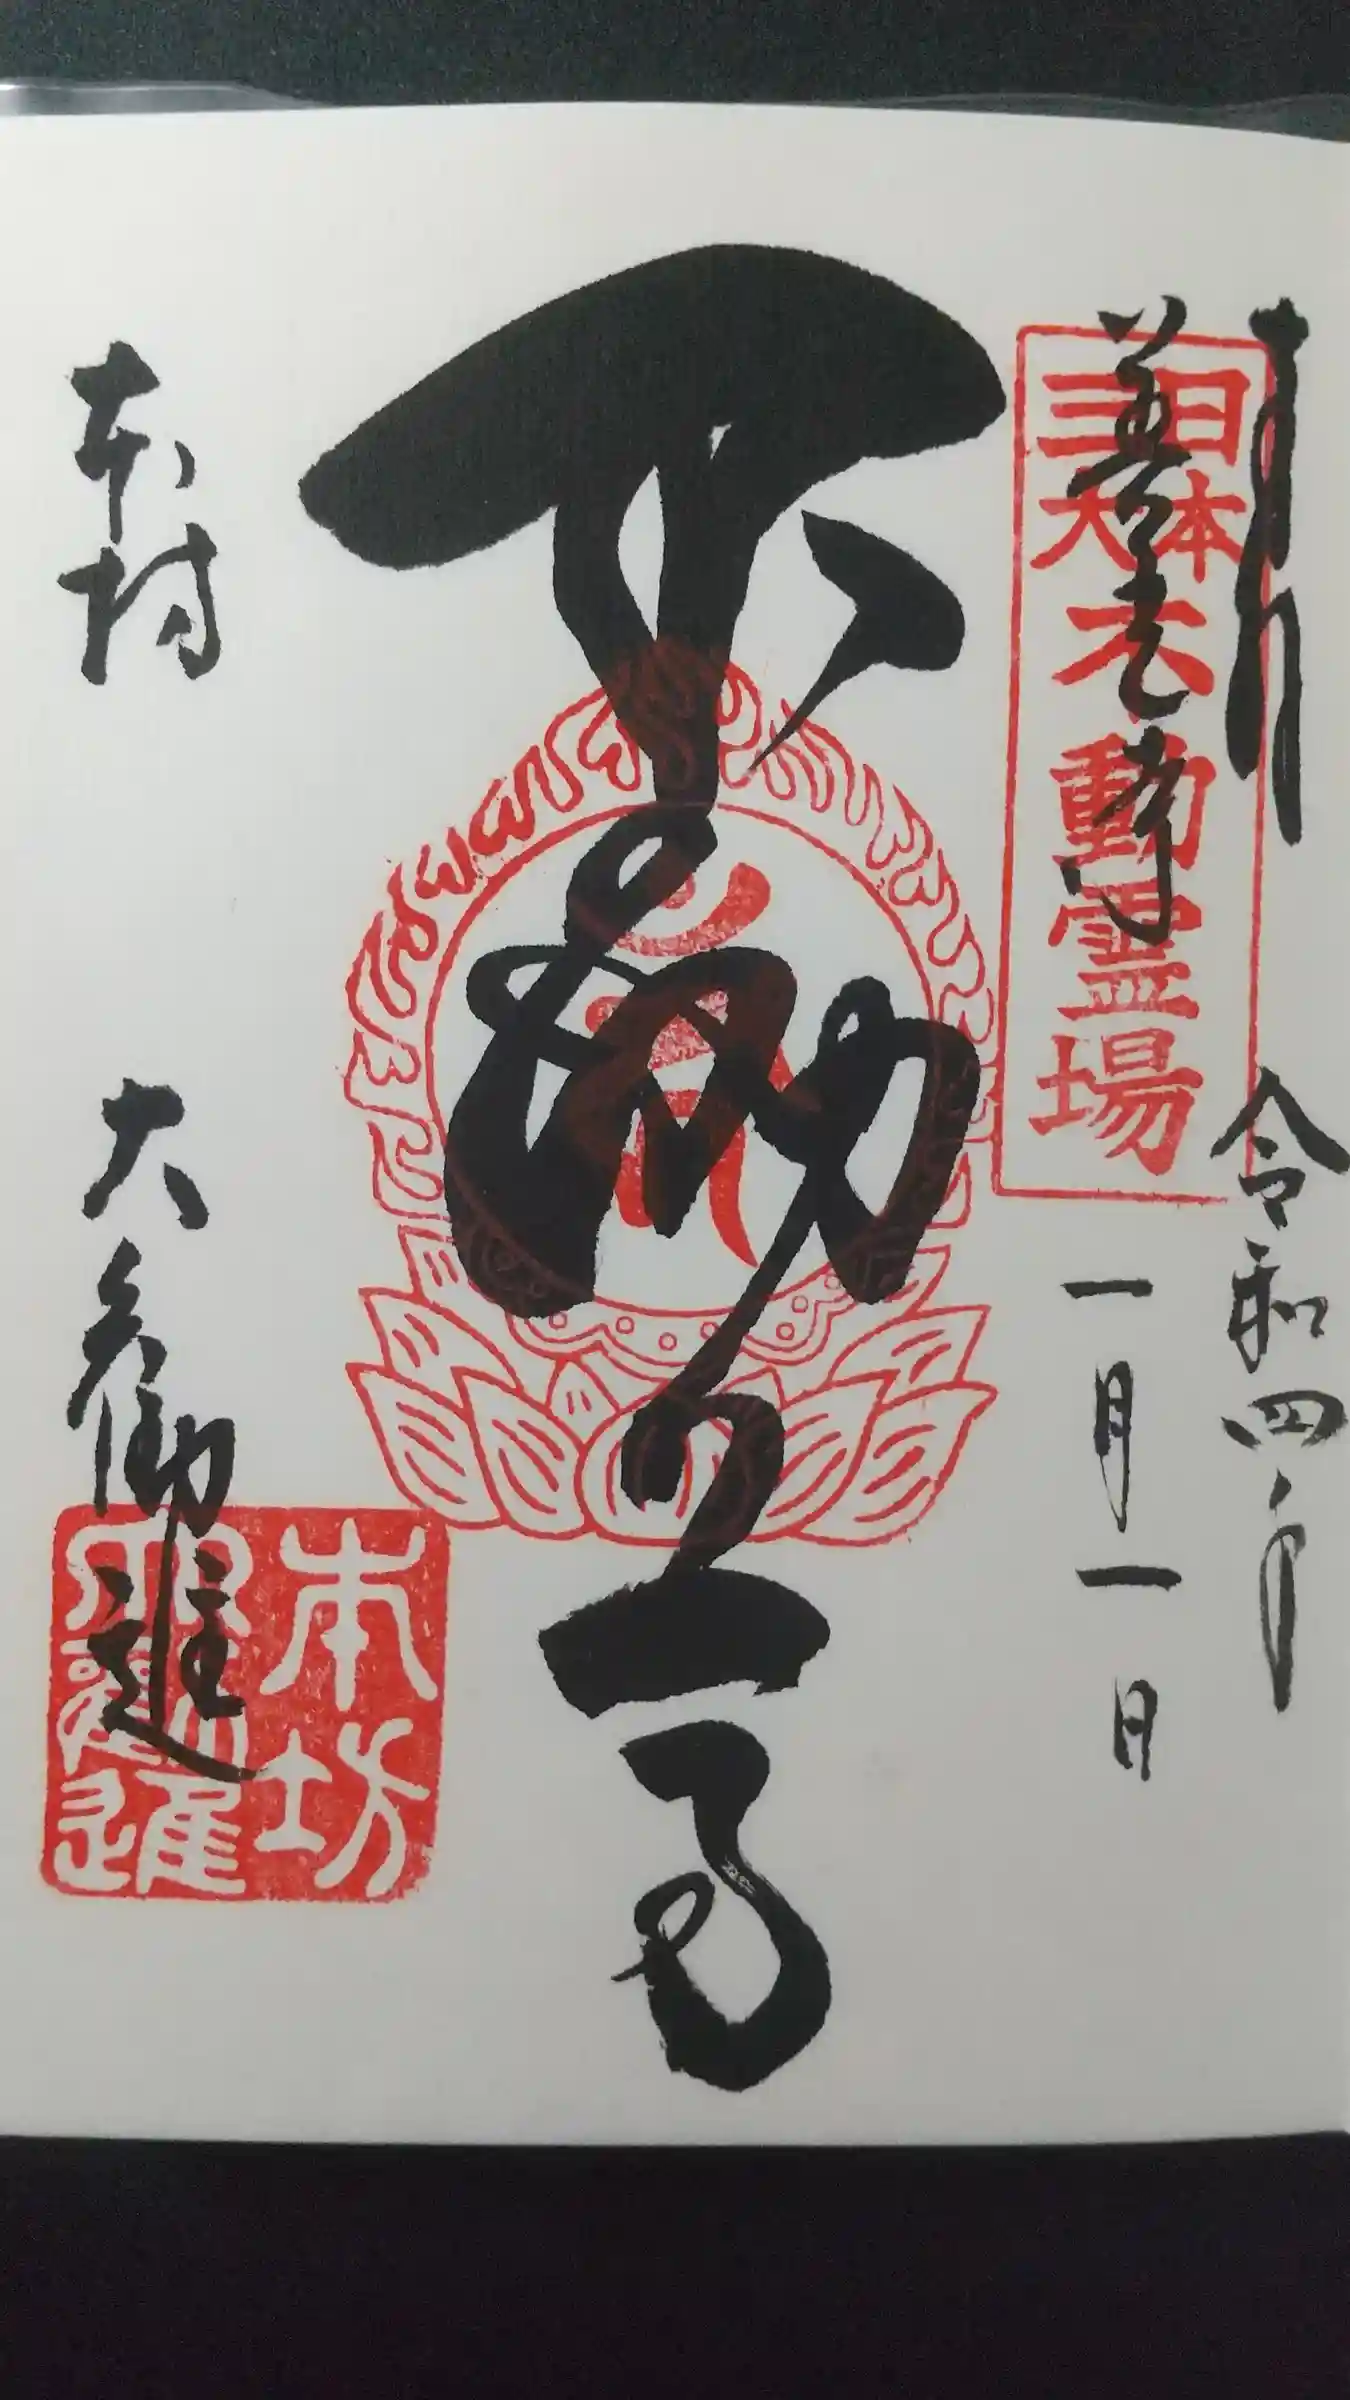 奉拝
令和四年
一月一日
日本
三大
不動霊場
不動尊
本坊
大勧進
本坊
大勧進